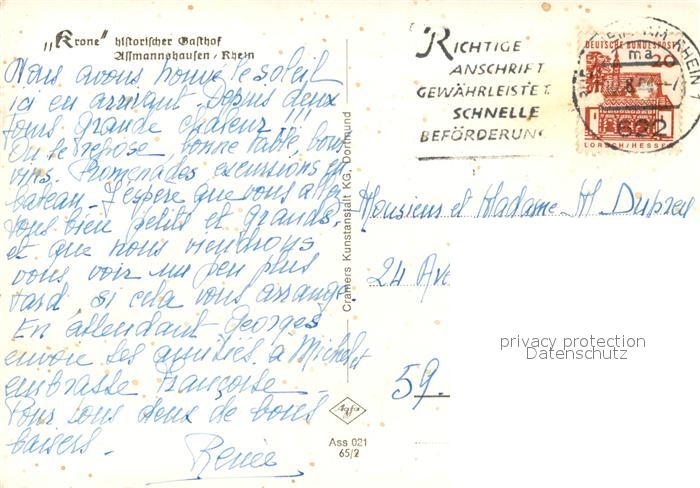 „Krone" historischer Gasthof
Assmannshausen / Rhein
Nous avons trouvé le soleil
ici en arrivant. Depuis deux
jours grande chaleur !!!
On se repose bonne table, bons
vins. Promenades excursions en
bateau. J'espère que vous allez
tous bien petits et grands,
et que nous viendrons
vous voir un peu plus
tard, si cela vous arrange.
En attendant Georges
envoie ses amitiés à Michel et
embrasse Françoise –
Pour tous deux de bons
baisers –
Renée
Cramers Kunstanstalt KG, Dortmund
Agfa
Ass 021
65/2
RICHTIGE
ANSCHRIFT
GEWÄHRLEISTET
SCHNELLE
BEFÖRDERUNG
DEUTSCHE BUNDESPOST
20
LORSCH/HESSEN
ma
622
Monsieur et Madame M. Dupreu
24 Ave
59.
privacy protection
Datenschutz